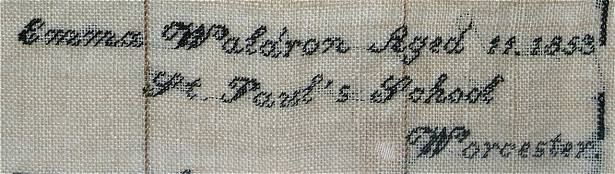 Emma Waldron Aged 11. 1853
St. Paul's School
Worcester.